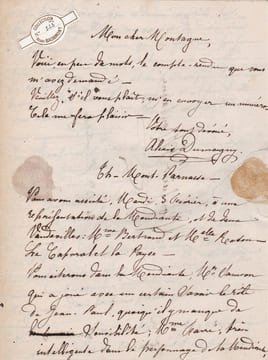 Mon cher Montagne,
Voici en peu de mots, le compte-rendu que vous
m'avez demandé —
Veuillez, s'il vous plaît, m'en envoyer un numéro
Cela me fera plaisir —
Votre tout dévoué,
Th. Mont-Parnasse —
Nous avons assisté, Mardi, 3 à une
représentation de la Mendiante, et de deux
Vaudevilles: Mme Bertrand et Mlle Raton
Le Caporal et la Payse —
Nous citerons dans la Mendiante, Mr
qui a joué avec un certain savoir le rôle
de Jean-Paul, quoiqu'il manque de
sensibilité; Mme bien
intelligente dans le personnage de la Mendiante